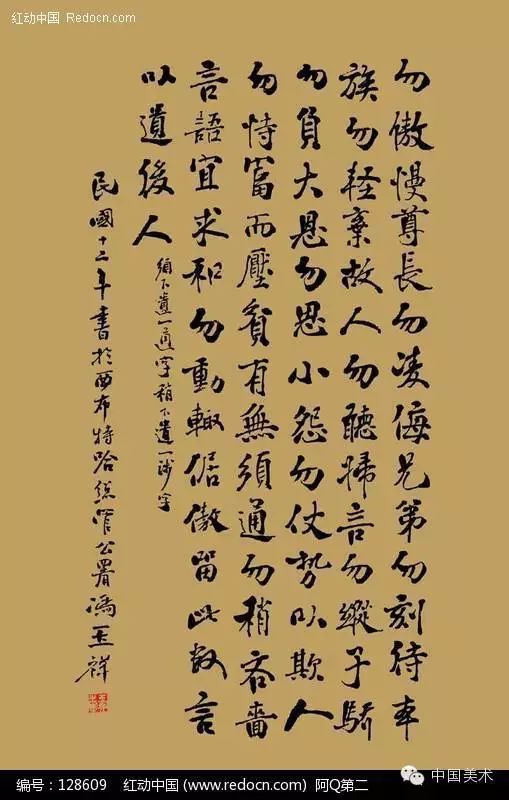 红动中国 Redocn.com
红动中国 (www.redocn.com)
勿傲慢尊長勿凌侮兄弟勿刻待本
族勿轻棄故人勿聽婦言勿縱子驕
勿負大恩勿思小怨勿仗勢以欺人
勿恃富而壓貧有無須通勿稍吝嗇
言語宜求和勿動輒倨傲留此数言
以遺後人
須下遺一通字稍下遺一字
民國十二年書於西布特哈總管公署馮玉祥
编号：128609 红动中国 (www.redocn.com) 阿Q第二
中国美术